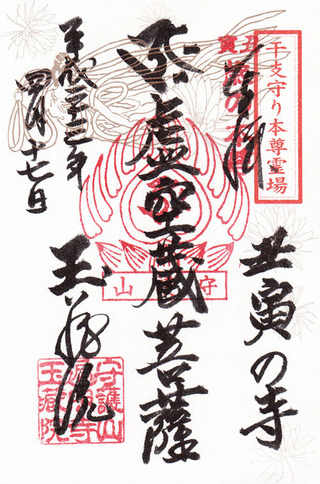 干支守り本尊霊場
丑
寅
奉拝
丑寅の寺
虚空蔵菩薩
守
山
玉蔵院
平成二十三年
四月十七日
守護山
玉蔵院